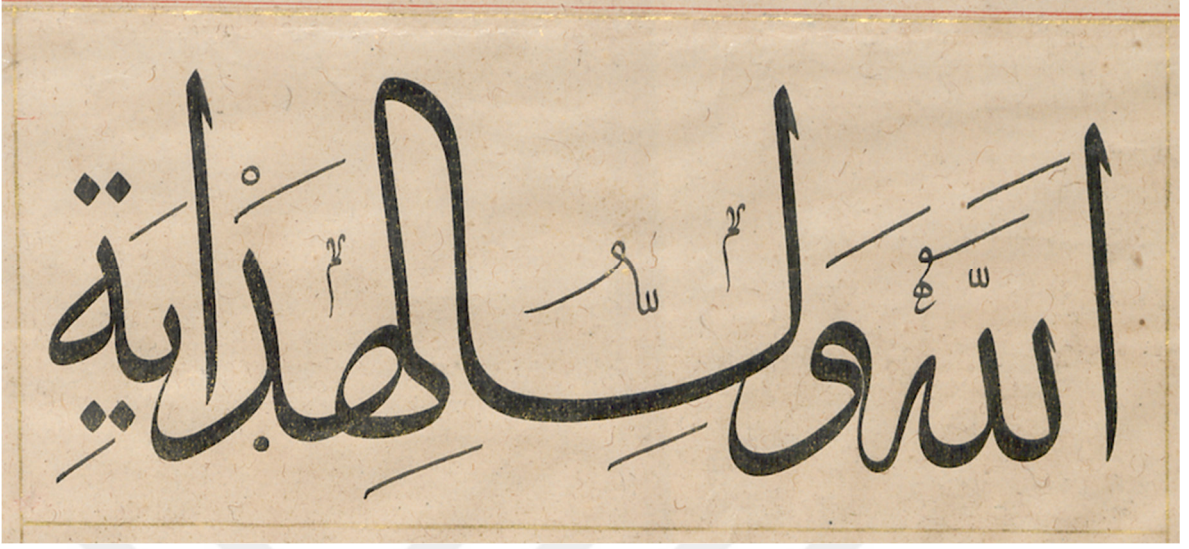 الله ولي الهداية